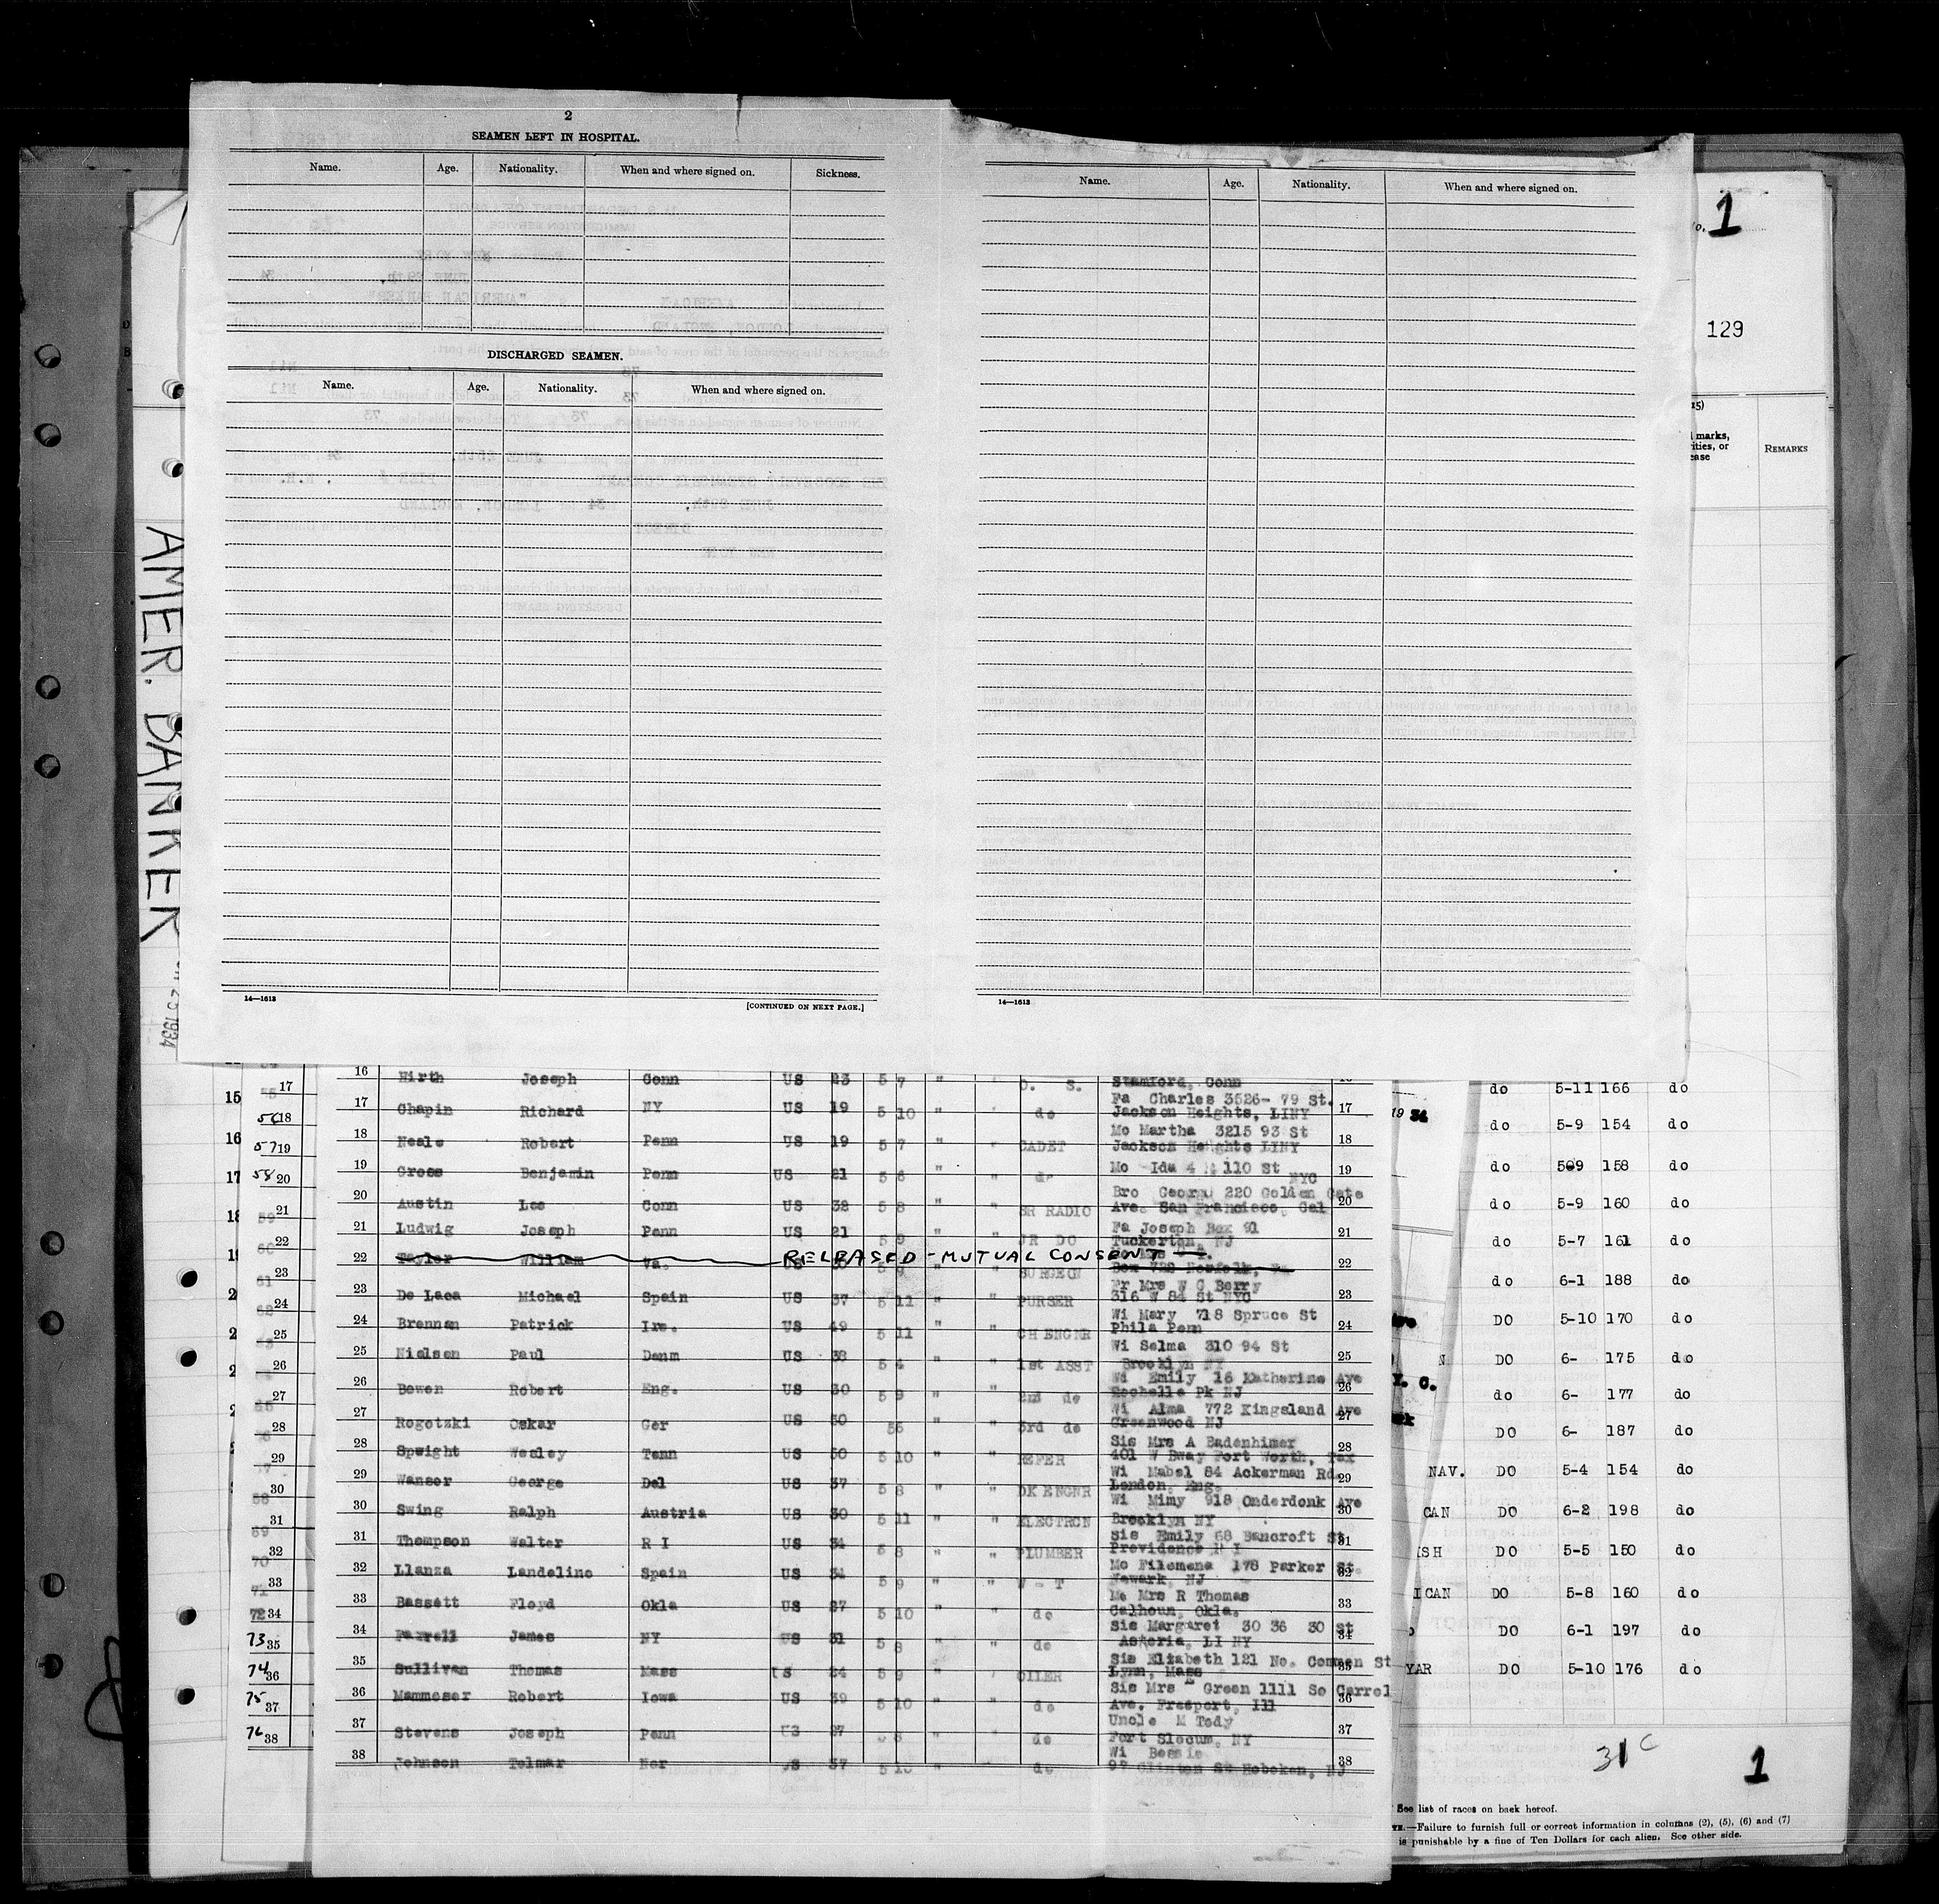 2
SEAMEN LEFT IN HOSPITAL.
Name. Age. Nationality. When and where signed on. Sickness.
DISCHARGED SEAMEN.
Name. Age. Nationality. When and where signed on.
14—1613 [CONTINUED ON NEXT PAGE.]
Name. Age. Nationality. When and where signed on.
14—1613
1
129
marks,
REMARKS
AMER. BANKER
1934
16 Hirth Joseph Conn US 23 5 7 " O. S. Stamford, Conn
17 Chapin Richard NY US 19 5 10 " do Fa Charles 3526- 79 St. Jackson Heights, LINY 17
18 Neale Robert Penn US 19 5 7 " " CADET Mo Martha 3215 93 St Jackson Heights LINY 18
19 Gross Benjamin Penn US 21 5 6 " " do Mo Ida 110 St NYC 19
20 Austin Lee Conn US 32 5 8 " " SR RADIO Bro George 220 Golden Gate Ave. San Francisco, Cal 20
21 Ludwig Joseph Penn US 21 5 9 " " JR DO Fa Joseph Box 91 Tuckerton, NJ 21
22 Tayler William Va. RELEASED - MUTUAL CONSENT SURGEON 22
23 De Laca Michael Spain US 37 5 11 " " PURSER Fr Mrs W G Berry 316 W 84 St NYC 23
24 Brennan Patrick Ire. US 49 5 11 " " CH ENGNR Wi Mary 718 Spruce St Phila Penn 24
25 Nielsen Paul Denm US 38 5 4 " " 1st ASST Wi Selma 310 94 St Brooklyn NY 25
26 Bowen Robert Eng. US 30 5 9 " " 2nd do Wi Emily 16 Katherine Ave Rochelle Pk NJ 26
27 Rogotzki Oskar Ger US 30 56 3rd do Wi Alma 772 Kingsland Ave Greenwood NJ 27
28 Speight Wesley Tenn US 50 5 10 " REFER Sis Mrs A Badenhimer 401 W Bway Fort Worth, Tex 28
29 Wanser George Del US 37 5 8 " " DK ENGNR Wi Mabel 84 Ackerman Rd London, Eng. 29
30 Swing Ralph Austria US 30 5 11 " " ELECTRCN Wi Mimy 918 Onderdonk Ave Brooklyn NY 30
31 Thompson Walter R I US 34 5 8 " " PLUMBER Sis Emily 68 Bancroft St Providence R I 31
32 Llanza Landelino Spain US 34 5 9 " " W - T Mo Filomena 178 Parker St. Newark, NJ 32
33 Bassett Floyd Okla US 27 5 10 " do Mo Mrs R Thomas Calhoun, Okla. 33
34 Farrell James NY US 31 5 8 " do Sis Margaret 30 36 30 St Astoria, LI NY 34
35 Sullivan Thomas Mass US 24 5 9 " OILER Sis Elizabeth 121 No. Common St Lynn, Mass 35
36 Mammoser Robert Iowa US 39 5 10 " do Sis Mrs Green 1111 So Carrol Ave. Freeport, Ill 36
37 Stevens Joseph Penn US 27 5 8 " " do Uncle M Tody Fort Slocum, NY 37
38 Johnson Telmar Nor US 37 " do Wi Bessie Clinton St Hoboken, NJ 38
15
16
17
17
18
19
20
21
22
23
24
25
26
27
28
29
30
31
32
33
72 34
73 35
74 36
75 37
76 38
19 34
do 5-11 166 do
do 5-9 154 do
do 5-9 158 do
do 5-9 160 do
do 5-7 161 do
do 6-1 188 do
DO 5-10 170 do
DO 6- 175 do
do 6- 177 do
DO 6- 187 do
NAV. DO 5-4 154 do
CAN DO 6-2 198 do
DO 5-5 150 do
ICAN DO 5-8 160 do
DO 6-1 197 do
DO 5-10 176 do
1
See list of races on back hereof.
—Failure to furnish full or correct information in columns (2), (5), (6) and (7)
is punishable by a fine of Ten Dollars for each alien. See other side.